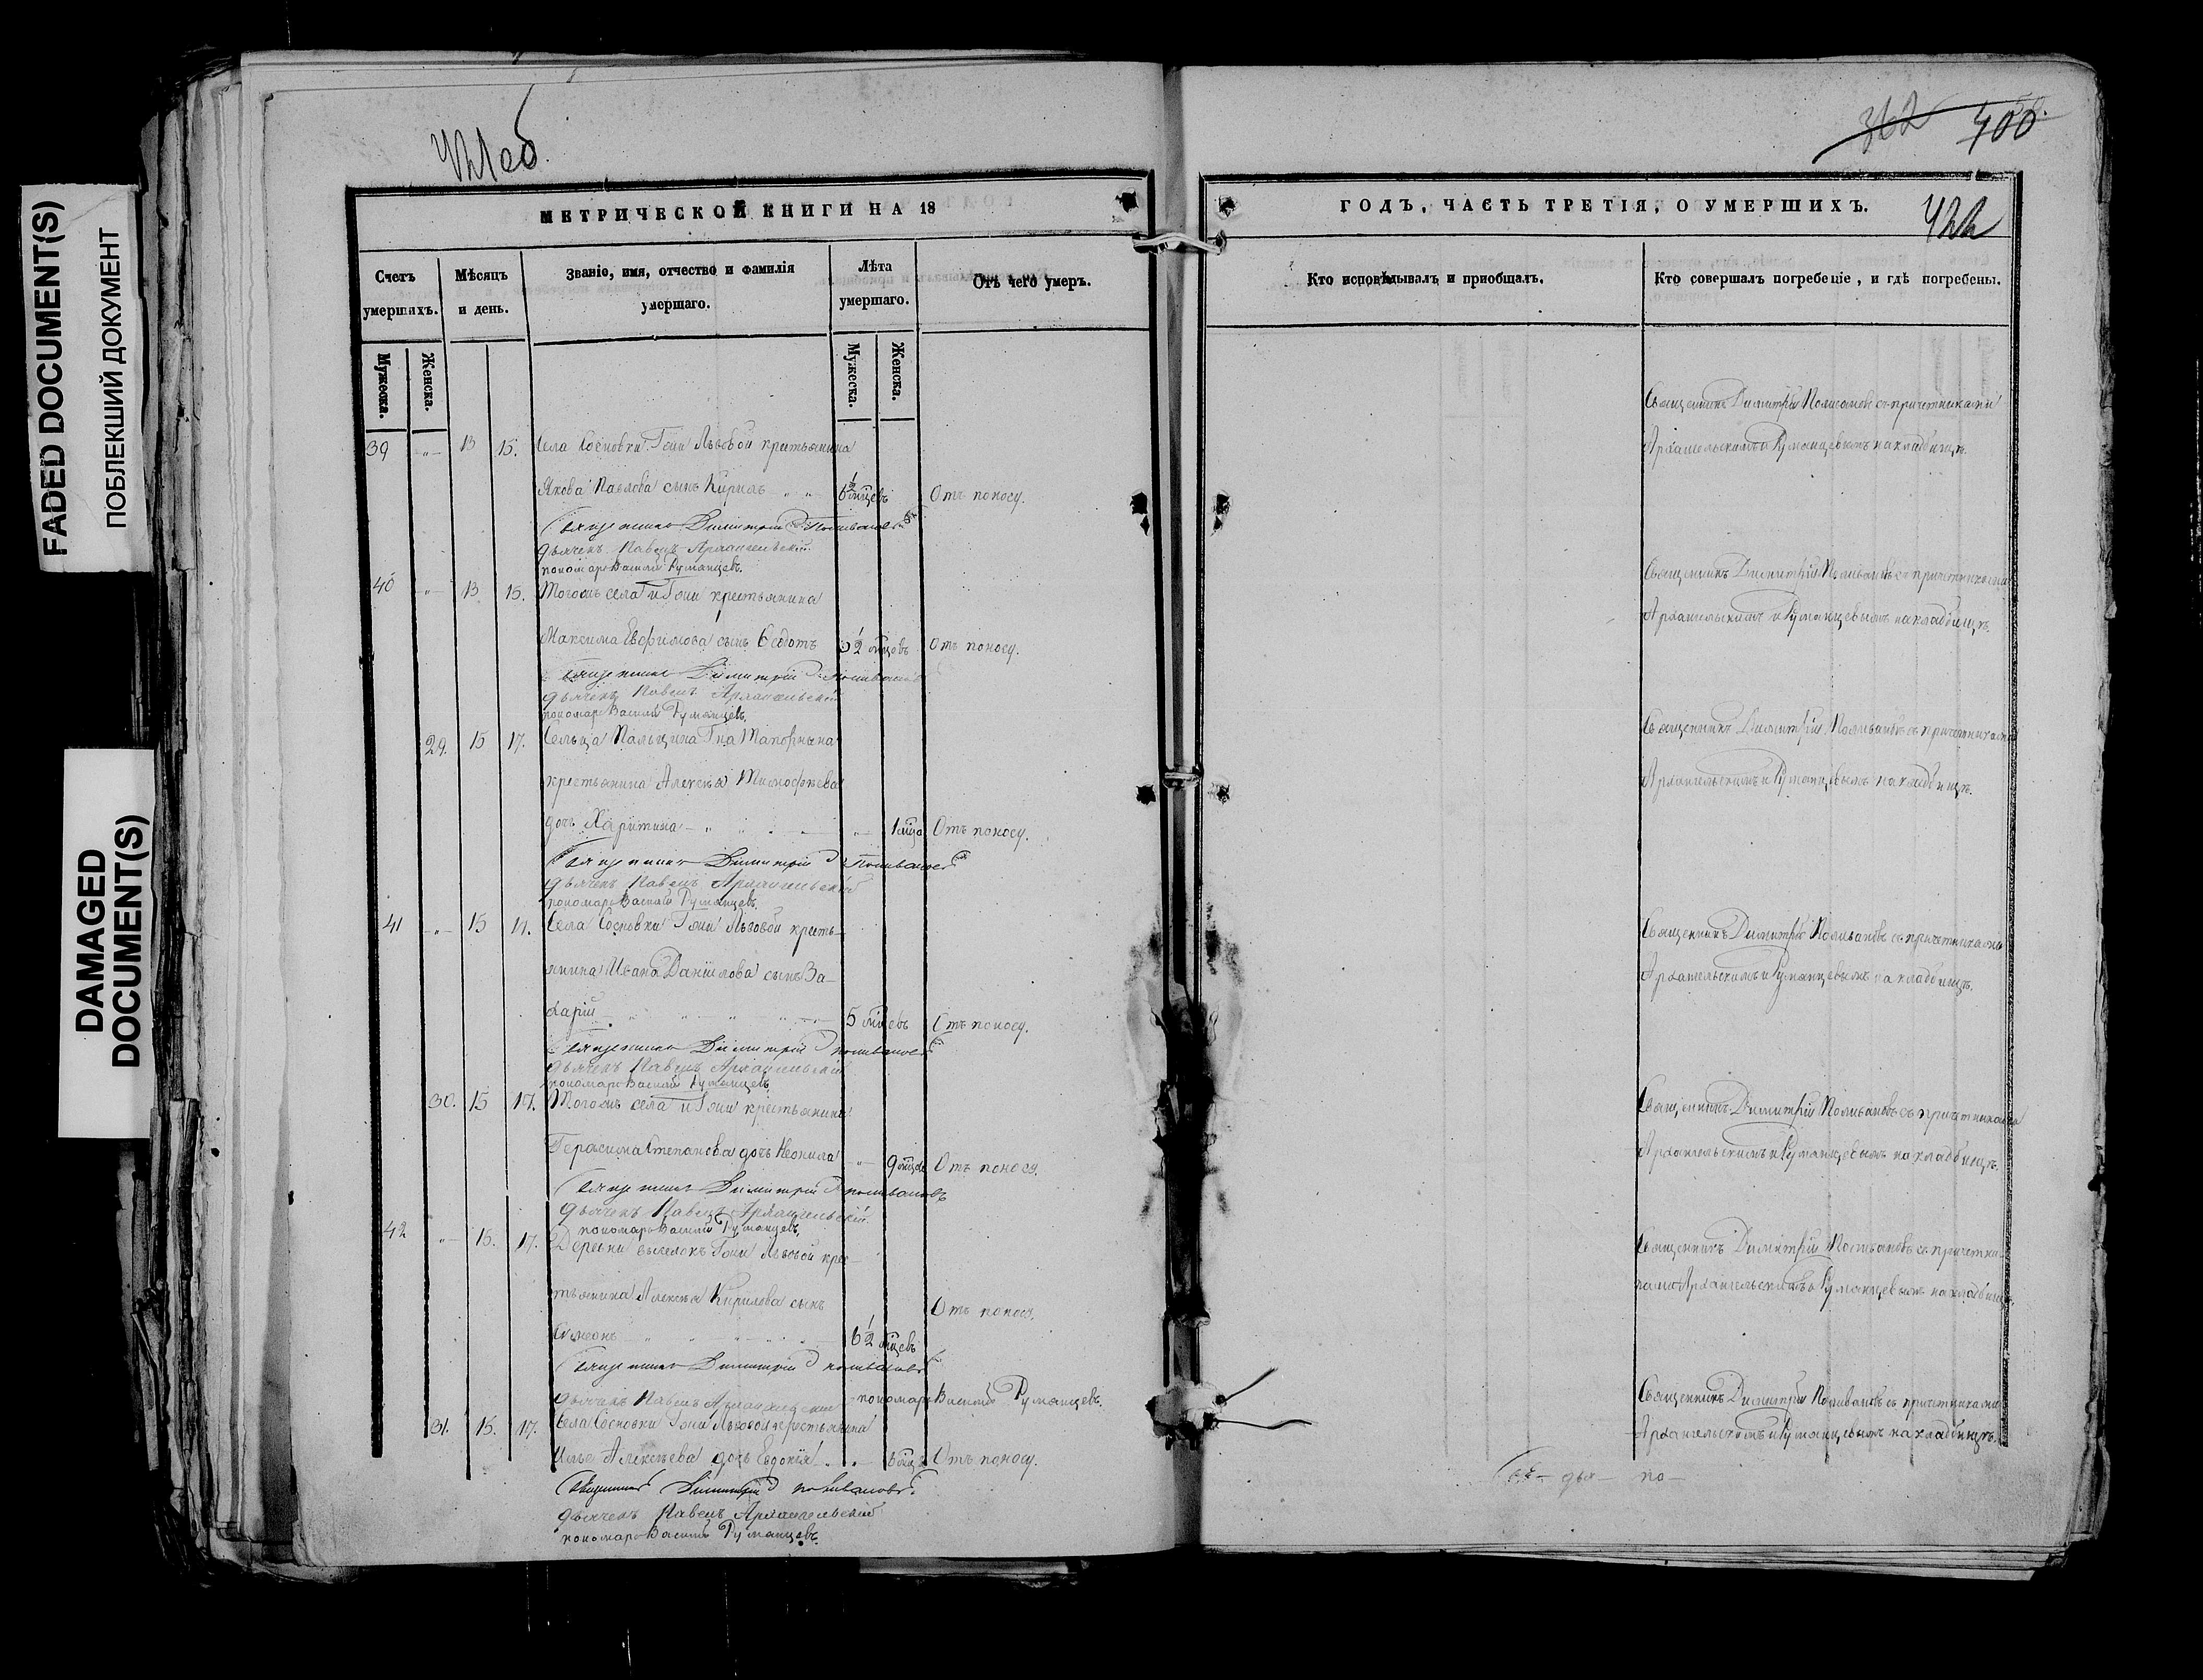 FADED DOCUMENT(S)
ПОБЛЕКШИЙ ДОКУМЕНТ
DAMAGED
DOCUMENT(S)
421об.
МЕТРИЧЕСКОЙ КНИГИ НА 18
Счетъ умершихъ.
Мѣсяцъ и день.
Званіе, имя, отчество и фамилія умершаго.
Лѣта умершаго.
Отъ чего умеръ.
Мужеска. Женска. Мужеска. Женска.
39 „ 13 15. Села Сосновки Гжи Львовой крестьянина
Якова Павлова сынъ Кирилъ Отъ поносу.
Священникъ Димитрій Поливановъ
дьячекъ Павелъ Архангельскій
пономарь Василій Румянцевъ.
40 „ 13 15. Тогожъ села и Гжи крестьянина
Максима Евфимова сынъ Ѳеодотъ мцевъ Отъ поносу.
Священникъ Димитрій Поливановъ
дьячекъ Павелъ Архангельскій
пономарь Василій Румянцевъ.
29. 15 17. Сельца Гна
крестьянина Алексѣя Тимофѣева
дочь Харитина „ 1 мца Отъ поносу.
Священникъ Димитрій Поливановъ
дьячекъ Павелъ Архангельскій
пономарь Василій Румянцевъ.
41 „ 15 17. Села Сосновки Гжи Львовой кресть-
янина Ивана Даніилова сынъ За-
харій 5 мцевъ Отъ поносу.
Священникъ Димитрій Поливановъ
дьячекъ Павелъ Архангельскій
пономарь Василій Румянцевъ
30. 15 17. Тогожъ села и Гжи крестьянина
Герасима Степанова дочь Неонила „ 9 мцевъ Отъ поноса.
Священникъ Димитрій Поливановъ
дьячекъ Павелъ Архангельскій
пономарь Василій Румянцевъ,
42 „ 15. 17. Деревни выселокъ Гжи Львовой крес-
тьянина Алексѣя Кирилова сынъ Отъ поноса.
Симеонъ 6 1/2 мцевъ
Священникъ Димитрій Поливановъ
дьячекъ Павелъ Архангельскій пономарь Василій Румянцевъ.
31. 15. 17. Села Сосновки Гжи Львовой крестьянина
Ильи Алексѣева дочь Евдокія Отъ поносу.
Священникъ Димитрій Поливановъ
дьячекъ Павелъ Архангельскій
пономарь Василій Румянцевъ.
362 400
ГОДЪ, ЧАСТЬ ТРЕТІЯ, О УМЕРШИХЪ.
422
Кто исповѣдывалъ и приобщалъ.
Кто совершалъ погребеніе, и гдѣ погребены.
Священникъ Димитрій Поливановъ съ причетниками
Архангельскимъ и Румянцевымъ на кладбищѣ.
Священникъ Димитрій Поливановъ съ причетниками
Архангельскимъ и Румянцевымъ на кладбищѣ.
Священникъ Димитрій Поливановъ съ причетниками
Архангельскимъ и Румянцевымъ на кладбищѣ.
Священникъ Димитрій Поливановъ съ причетниками
Архангельскимъ и Румянцевымъ на кладбищѣ.
Священникъ Димитрій Поливановъ съ причетниками
Архангельскимъ и Румянцевымъ на кладбищѣ.
Священникъ Димитрій Поливановъ съ причетни-
ками Архангельскимъ и Румянцевымъ на кладбищѣ.
Священникъ Димитрій Поливановъ съ причетниками
Архангельскимъ и Румянцевымъ на кладбищѣ.
дья- по-